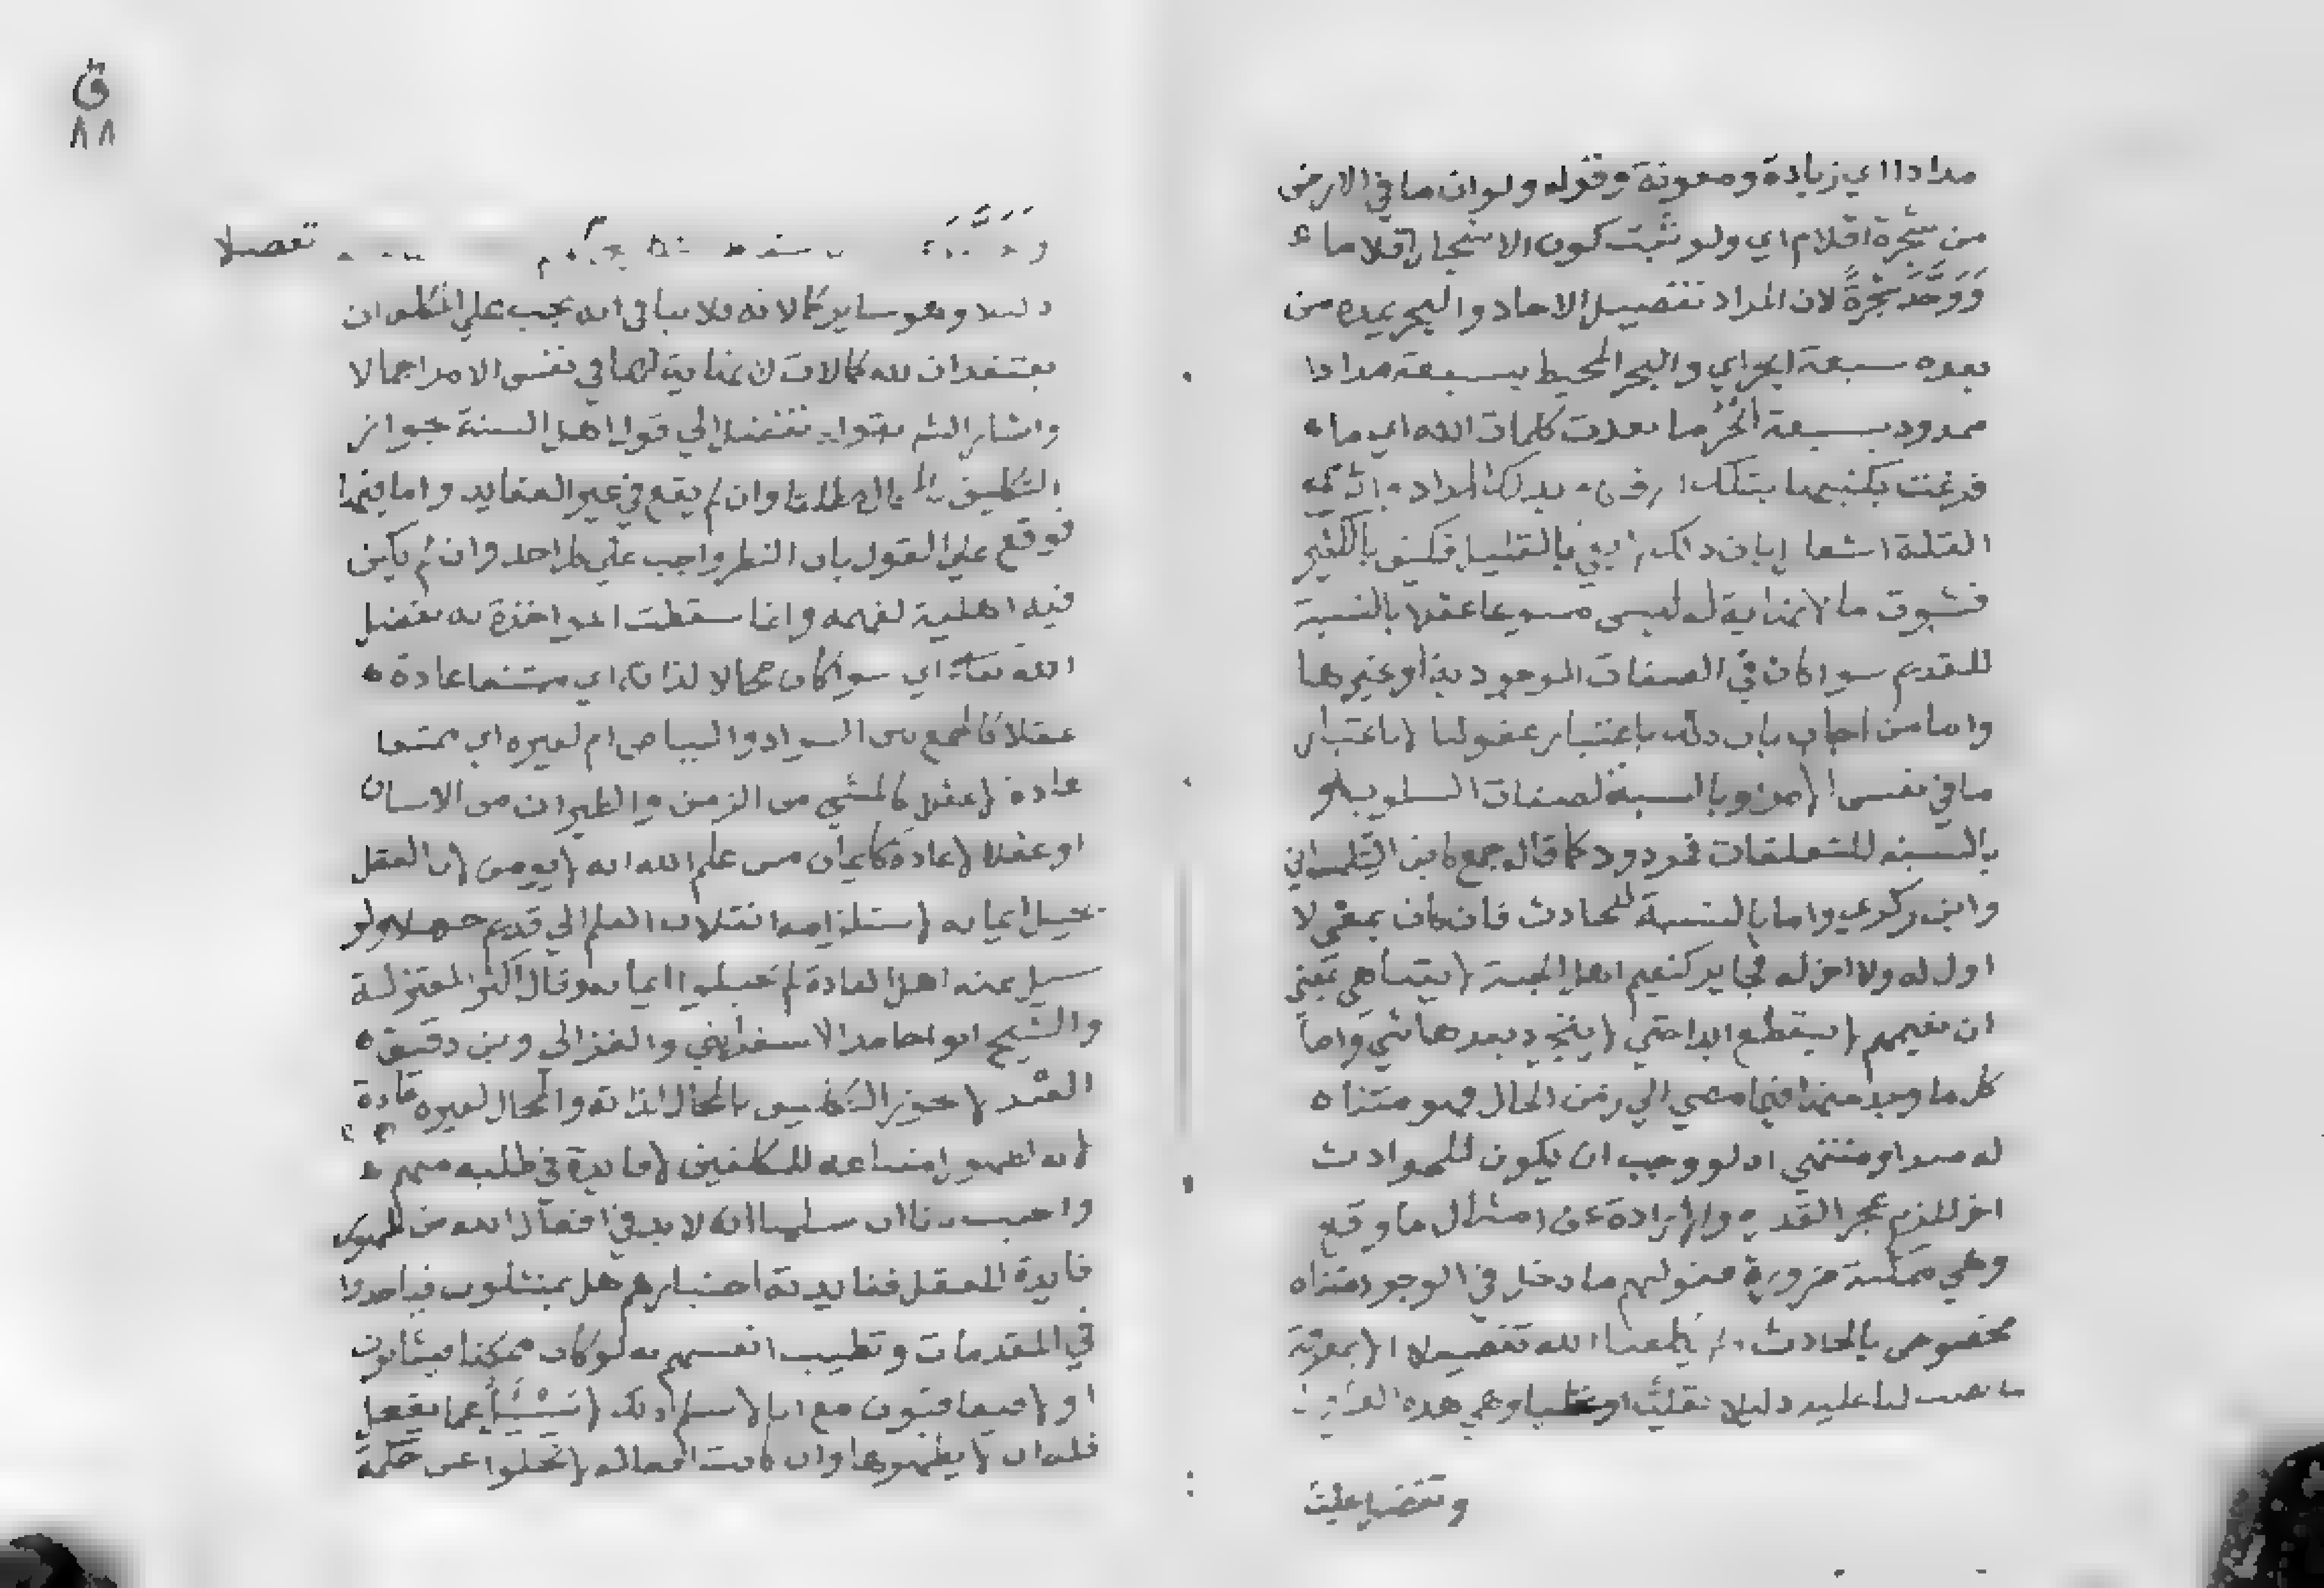 مدادا اي زيادة ومعونة وقوله ولو ان ما في الارض
من شجرة اقلام اي ولو ثبت كون الاشجار اقلاما
وَوَحَّدَ شجرةً لان المراد تفصيل الاحاد والبحر يمده من
بعده سبعة ابحر اي والبحر المحيط بسبعة مدادا
ممدود بسبعة ابحر ما نفدت كلمات الله اي ما
فرغت بكتبها بتلك بذلك المداد
القلة اشعا بان ذلك يفي بالقليل فكيف بالكثير
فثبوت ما لا نهاية له ليس ممنوعا عقلا بالنسبة
للقديم سوا كان في الصفات الموجودية او غيرها
واما من اجاب بان ذلك باعتبار عقولنا لا باعتبار
ما في نفس الامر وبالنسبة لصفات السلوب او
بالنسبة للتعلقات فمردود كما قال جمع كابن التلمساني
وابن زكري واما بالنسبة للحادث فان كان بمعني لا
اول له ولا اخر له فجايز كنعيم اهل الجنة لا يتناهي بمعني
ان نعيمهم لا ينقطع ابدا حتي لا يتجدد بعدها شي واما
كل ما وجد منها فيما مضي الي زمن الحال فهو متناه
له مبدا ومنتهي اذ لو وجب ان يكون للحوادث
اخر للزم عجز القدرة والارادة عن امثال ما وقع
وهي ممكنة ضرورة فقولهم ما دخل في الوجود متناه
مخصوص بالحادث ولم يكلفنا الله تفصيلا لا بمعرفة
ما نصب لنا عليه دليلا نقليًا او عقليا وهي هذه
وتفضل علينا
ق
٨٨
تفصيلا
ذلك وهو ساير كمالاته فلا ينافي انه يجب علي المكلف ان
يعتقد ان لله كمالات لا نهاية لها في نفس الامر اجمالا
واشار الش بقوله تفضل الي قول اهل السنة بجواز
التكليف بالمحال مطلقا وان لم يقع في غير العقايد واما فيها
فوقع علي القول بان النظر واجب علي كل احد وان لم يكن
فيه اهلية لفهمه وانما سقطت المواخذة به بفضل
الله اي سوا كان محالا لذاته اي ممتنعا عادة
عقلا كالجمع بين السواد والبياض ام لغيره اي ممتنعا
عادة لا عقلا كالمشي من الزمن والطيران من الانسان
او عقلا لا عادة كايمان من علم الله انه لا يومن لان العقل
يحيل ايمانه لاستلزامه انقلاب العلم الي قديم جهلا ولو
سيل عنه اهل العادة لم يحيلوا ايمانه وقال اكثر المعتزلة
والشيخ ابو احامد الاسفرايني والغزالي وبن دقيق
العيد لا يجوز التكليف بالمحال لذاته والمحال لغيره عادة
لانه لظهور امتناعه للمكلفين لا فايدة في طلبه منهم
واجيب بانا ان سلمنا انه لا بد في افعال الله من ظهور
فايدة للعقل ففايدته اختبارهم هل يمتثلون فياخذوا
في المقدمات وتطيب انفسهم به لو كان ممكنا فيثابون
او لا فيعاقبون مع انا لا نسلم ذلك لا يُسْأل عما يفعل
فله ان لا يظهرها وان كانت افعاله لا تخلوا عن حكمة